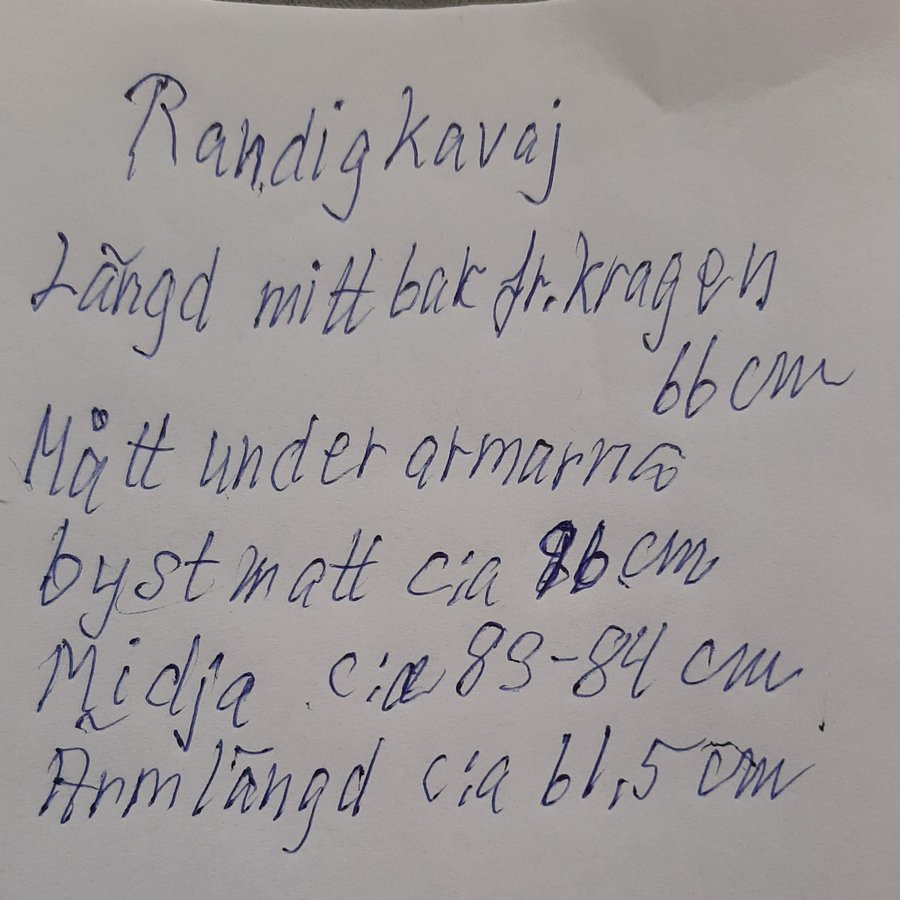 Randig kavaj
Längd mitt bak fr. kragen
66 cm
Mått under armarna
bystmatt c:a cm
Midja c:a 83-84 cm
Ärmlängd c:a 61,5 cm